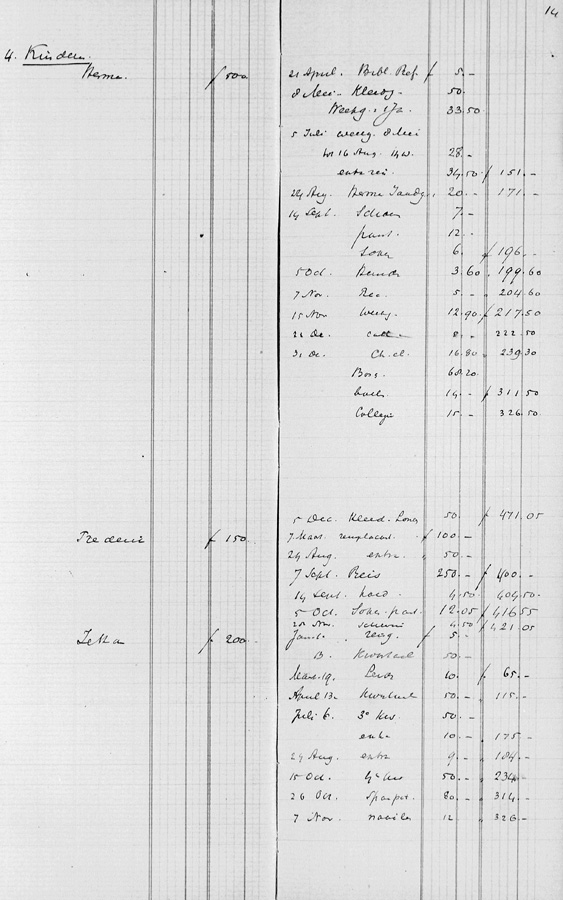 14
4. Kinderen.
Herma. ƒ 500 21 April. Bibl. Ref. ƒ 5.-
8 Mei.. Kleedg 50.
Weekg. 33.50
5 Juli weekg. 8 Mei
tot 16 Aug. 14 w. 28.-
extra reis 34.50 ƒ 151.-
24 Aug. Herma Tandg. 20.- 171.-
14 Sept. Schoen 7.-
pant. 12..
6. ƒ 196..
5 Oct. 3.60 199.60
7 Nov. Rec. 5.- 204.60
15 Nov weekg. 12.90 ƒ 217.50
21 De. 222.50
31 De. Ch. cl. 16.80 239.30
Bons. 68.20
14.- ƒ 311.50
College 15.- 326.50
5 Dec. Kleed. 50. ƒ 471.05
Frederic ƒ 150. 7 Maart remplacant. ƒ 100.-
24 Aug. extra. 50.-
7 Sept. Reis 250.- ƒ 400.-
14 Sept. hoed. 4.50 404.50
5 Oct. 12.05 ƒ 416.55
20 Nov. 4.50 ƒ 421.05
Jetha ƒ 200. zakg. ƒ 5.-
13. Kwartaal 50.-
Maart 19. 10. ƒ 65.-
April 13. Kwartaal 50.- 115.-
Juli 6. 3e Kw. 50.-
extra 10.- 175.-
24 Aug. extra 9.- 184.-
15 Oct. 4e kw 50.- 234.-
26 Oct. Spaarpot 80.- 314.-
7 Nov. 12 326.-